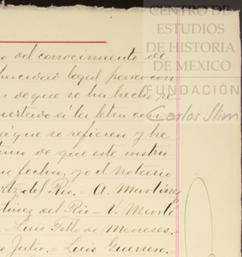 CENTRO DE
ESTUDIOS
DE HISTORIA
DE MEXICO
FUNDACIÓN
Carlos Slim
del conocimiento de
capacidad legal para con
de que se ha hecho
insertado á la letra co
á que se refieren y he
de que este instru
su fecha, yo el Notario
del Rio.- A. Martínez
tinez del Rio - V. Marti
- Luis Tello de Meneses.
Julio.- Luis Guerrero.